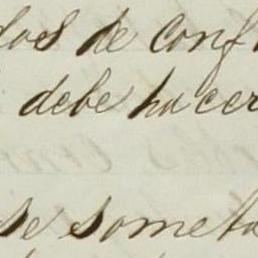 dos de conf
debe hacer
se someta